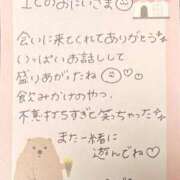 ICのおにいさま
会いに来てくれてありがとう
いっぱいお話しして
盛りあがったね
飲みかけのやつ、
不意打ちすぎて笑っちゃった
また一緒に
遊んでね